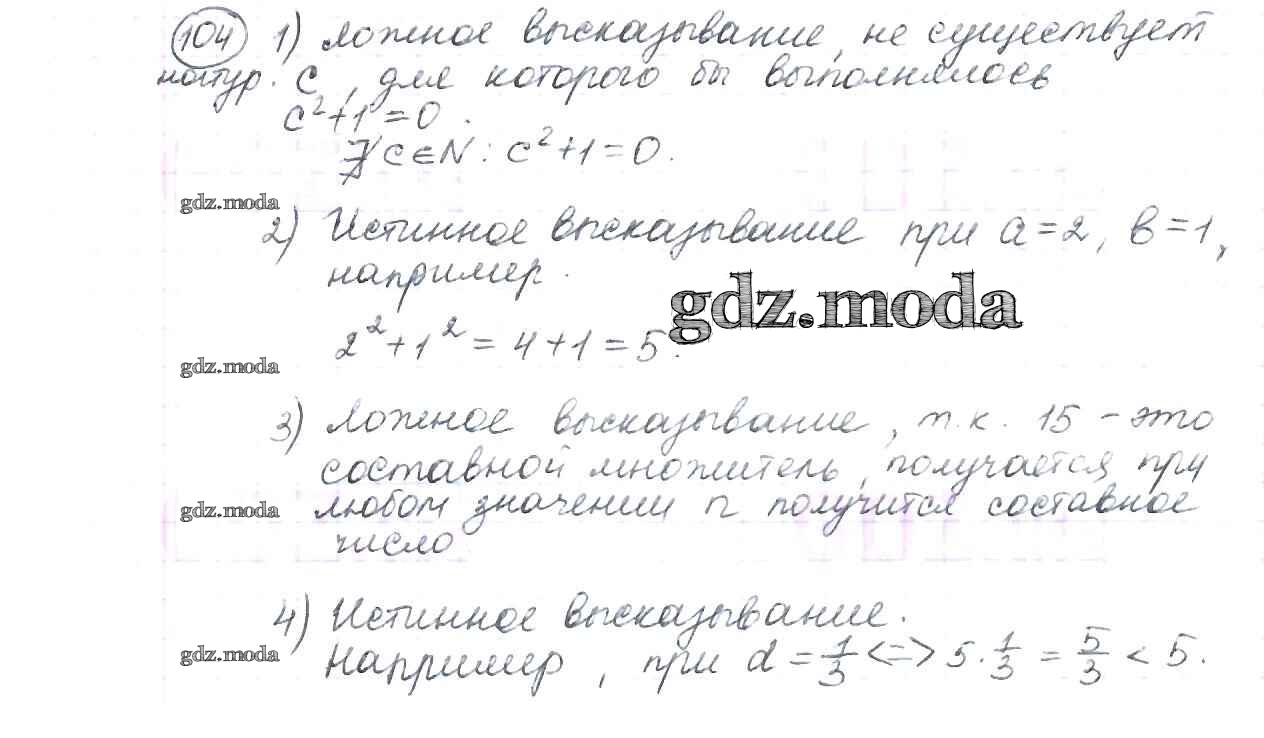 104 1) Ложное высказывание, не существует
натур. c, для которого бы выполнялось
c²+1=0.
∄ c∈N: c²+1=0.
gdz.moda
2) Истинное высказывание при a=2, b=1,
например.
gdz.moda
2²+1²=4+1=5.
gdz.moda
3) Ложное высказывание, т.к. 15 – это
составной множитель, получается, при
любом значении n получится составное
gdz.moda
число
4) Истинное высказывание.
Например, при d=1/3 <=> 5·1/3=5/3<5.
gdz.moda